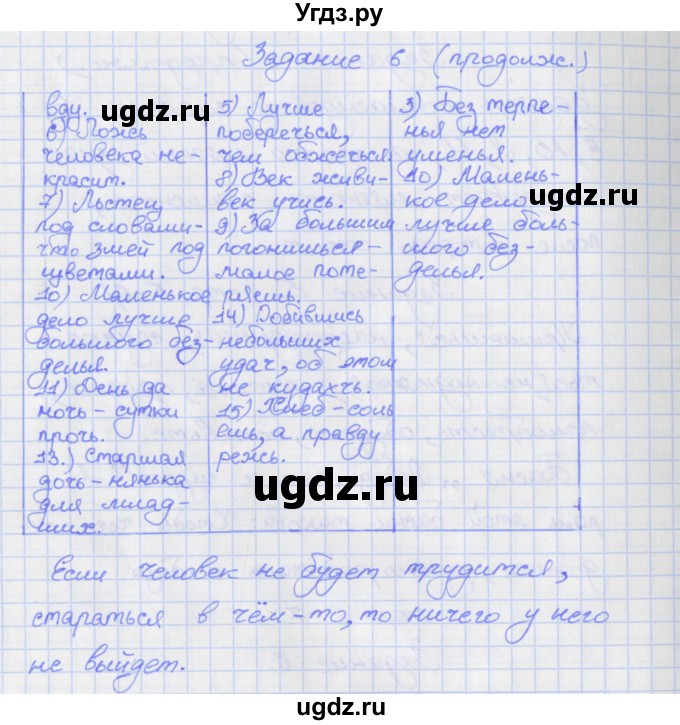 Угдз.ру
Задание 6 (продолж.)
вду.
6) Ложь
человека не-
красит.
7) Льстец
под словами-
что змей под
цветами.
10) Маленькое
дело лучше
большого без-
делья.
11) День да
ночь - сутки
прочь.
13.) Старшая
дочь - нянька
для млад-
ших.
5) Лучше
поберечься,
чем обжечься
8) Век живи-
век учись.
9) За большим
погонишься-
малое поте-
ряешь.
14) Добившись
небольших
удач, об этом
не кудахчь.
15) Хлеб-соль
ешь, а правду
режь.
3) Без терпе-
нья нет
уменья.
10) Малень-
кое дело
лучше боль-
шого без-
делья.
Если человек не будет трудится,
стараться в чём-то, то ничего у него
не выйдет.
ugdz.ru
ugdz.ru
ugdz.ru
ugdz.ru
ugdz.ru
ugdz.ru
ugdz.ru
ugdz.ru